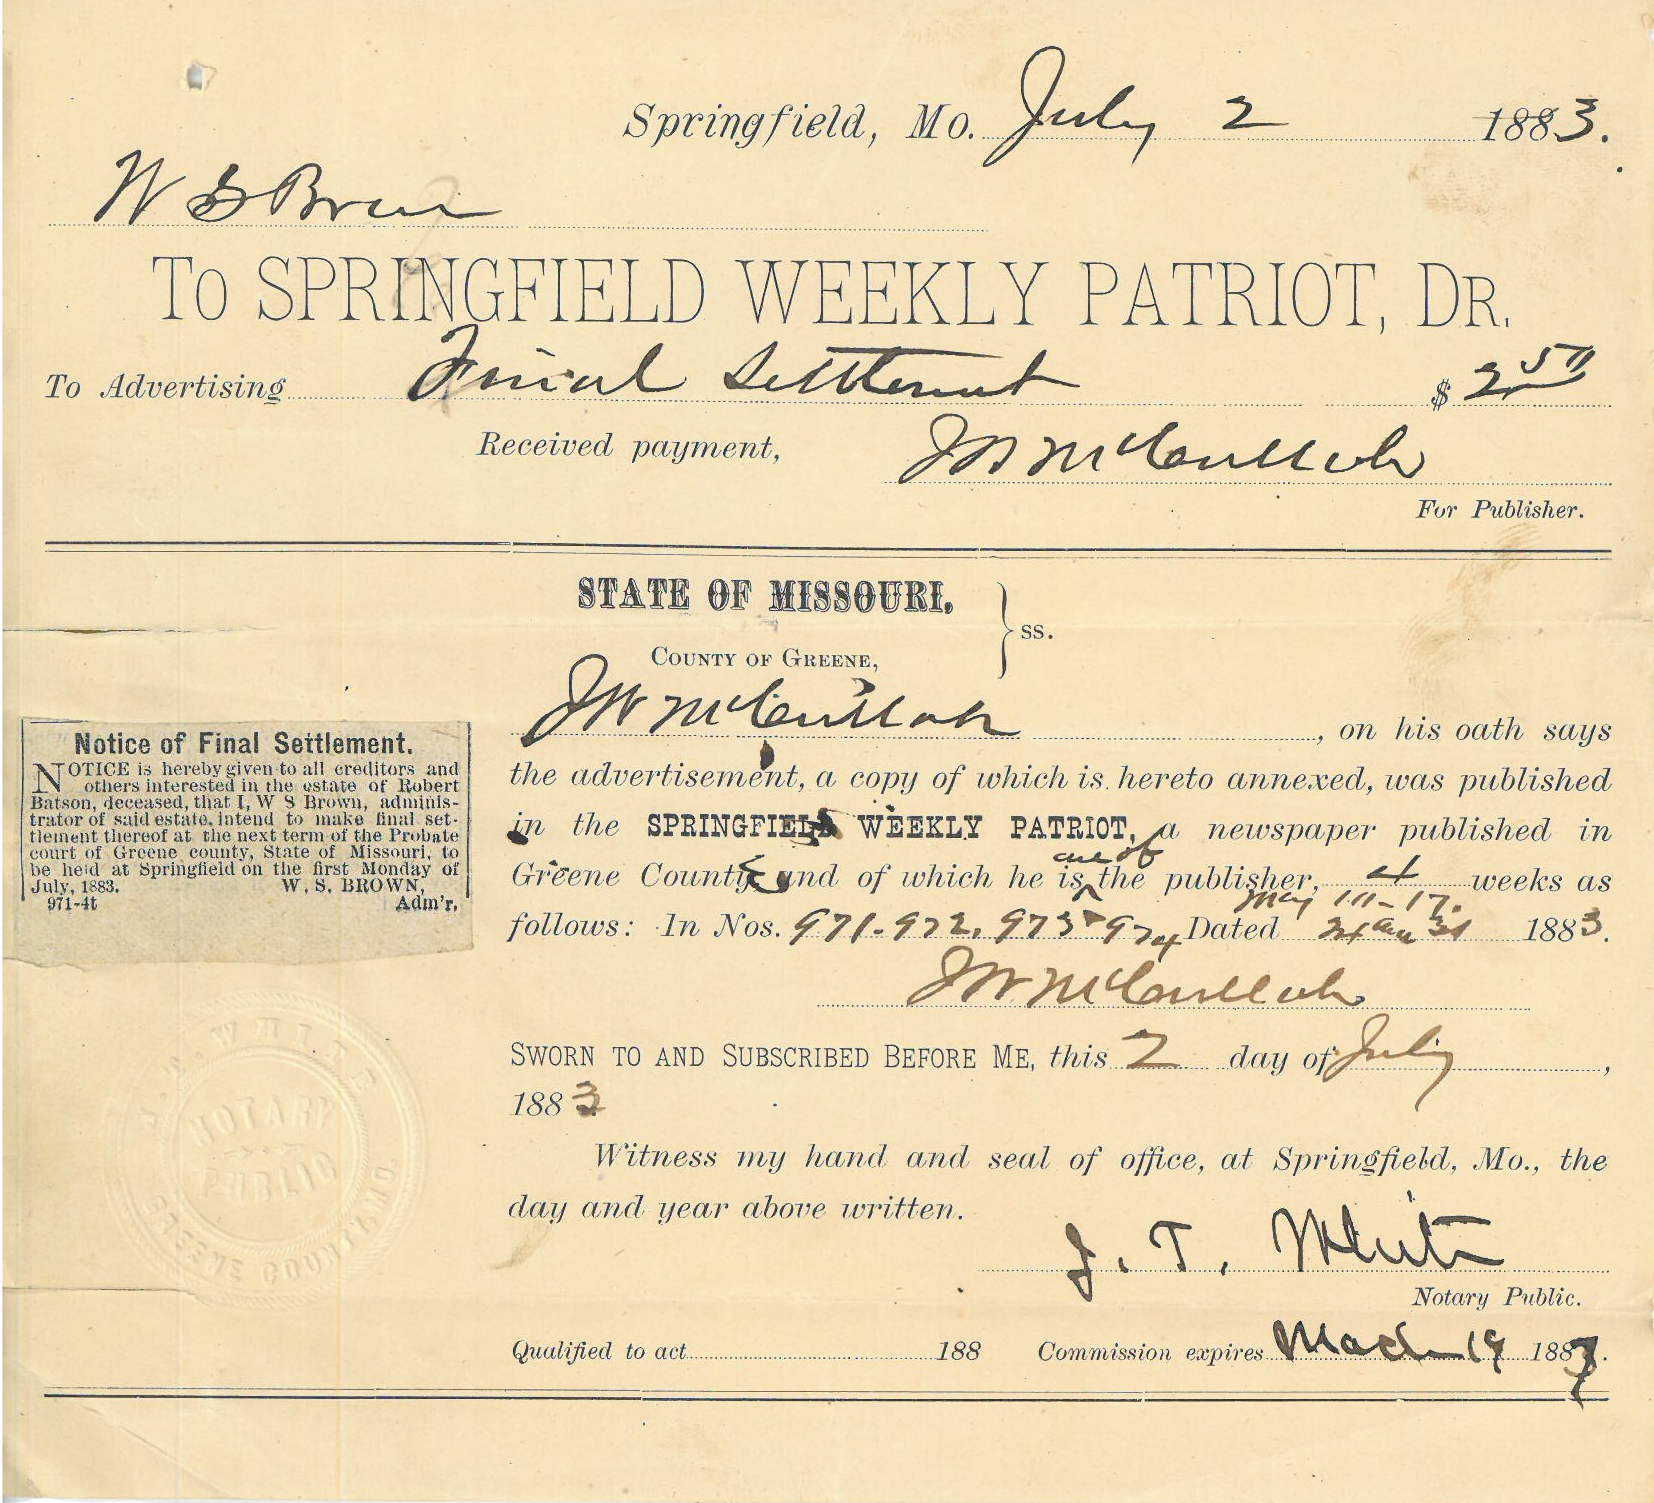 Springfield, Mo. July 2 1883.
W S Brown
To SPRINGFIELD WEEKLY PATRIOT, DR.
To Advertising Final Settlement $ 2 50
Received payment, J W McCullah
For Publisher.
STATE OF MISSOURI,
COUNTY OF GREENE, } ss.
J W McCullah, on his oath says
the advertisement, a copy of which is hereto annexed, was published
in the SPRINGFIELD WEEKLY PATRIOT, a newspaper published in
one of
Greene County and of which he is the publisher, 4 weeks as
May 10-17.
follows: In Nos. 971-972, 973 974 Dated 24 and 31 1883.
J W McCullah
SWORN TO AND SUBSCRIBED BEFORE ME, this 2 day of July,
1883
Witness my hand and seal of office, at Springfield, Mo., the
day and year above written.
J. T. White
Notary Public.
Qualified to act 188 Commission expires March 19 1887.
Notice of Final Settlement.
NOTICE is hereby given to all creditors and
others interested in the estate of Robert
Batson, deceased, that I, W S Brown, adminis-
trator of said estate, intend to make final set-
tlement thereof at the next term of the Probate
court of Greene county, State of Missouri, to
be held at Springfield on the first Monday of
July, 1883. W. S. BROWN,
971-4t Adm'r.
WHITE
NOTARY
PUBLIC
GREENE COUNTY, MO.